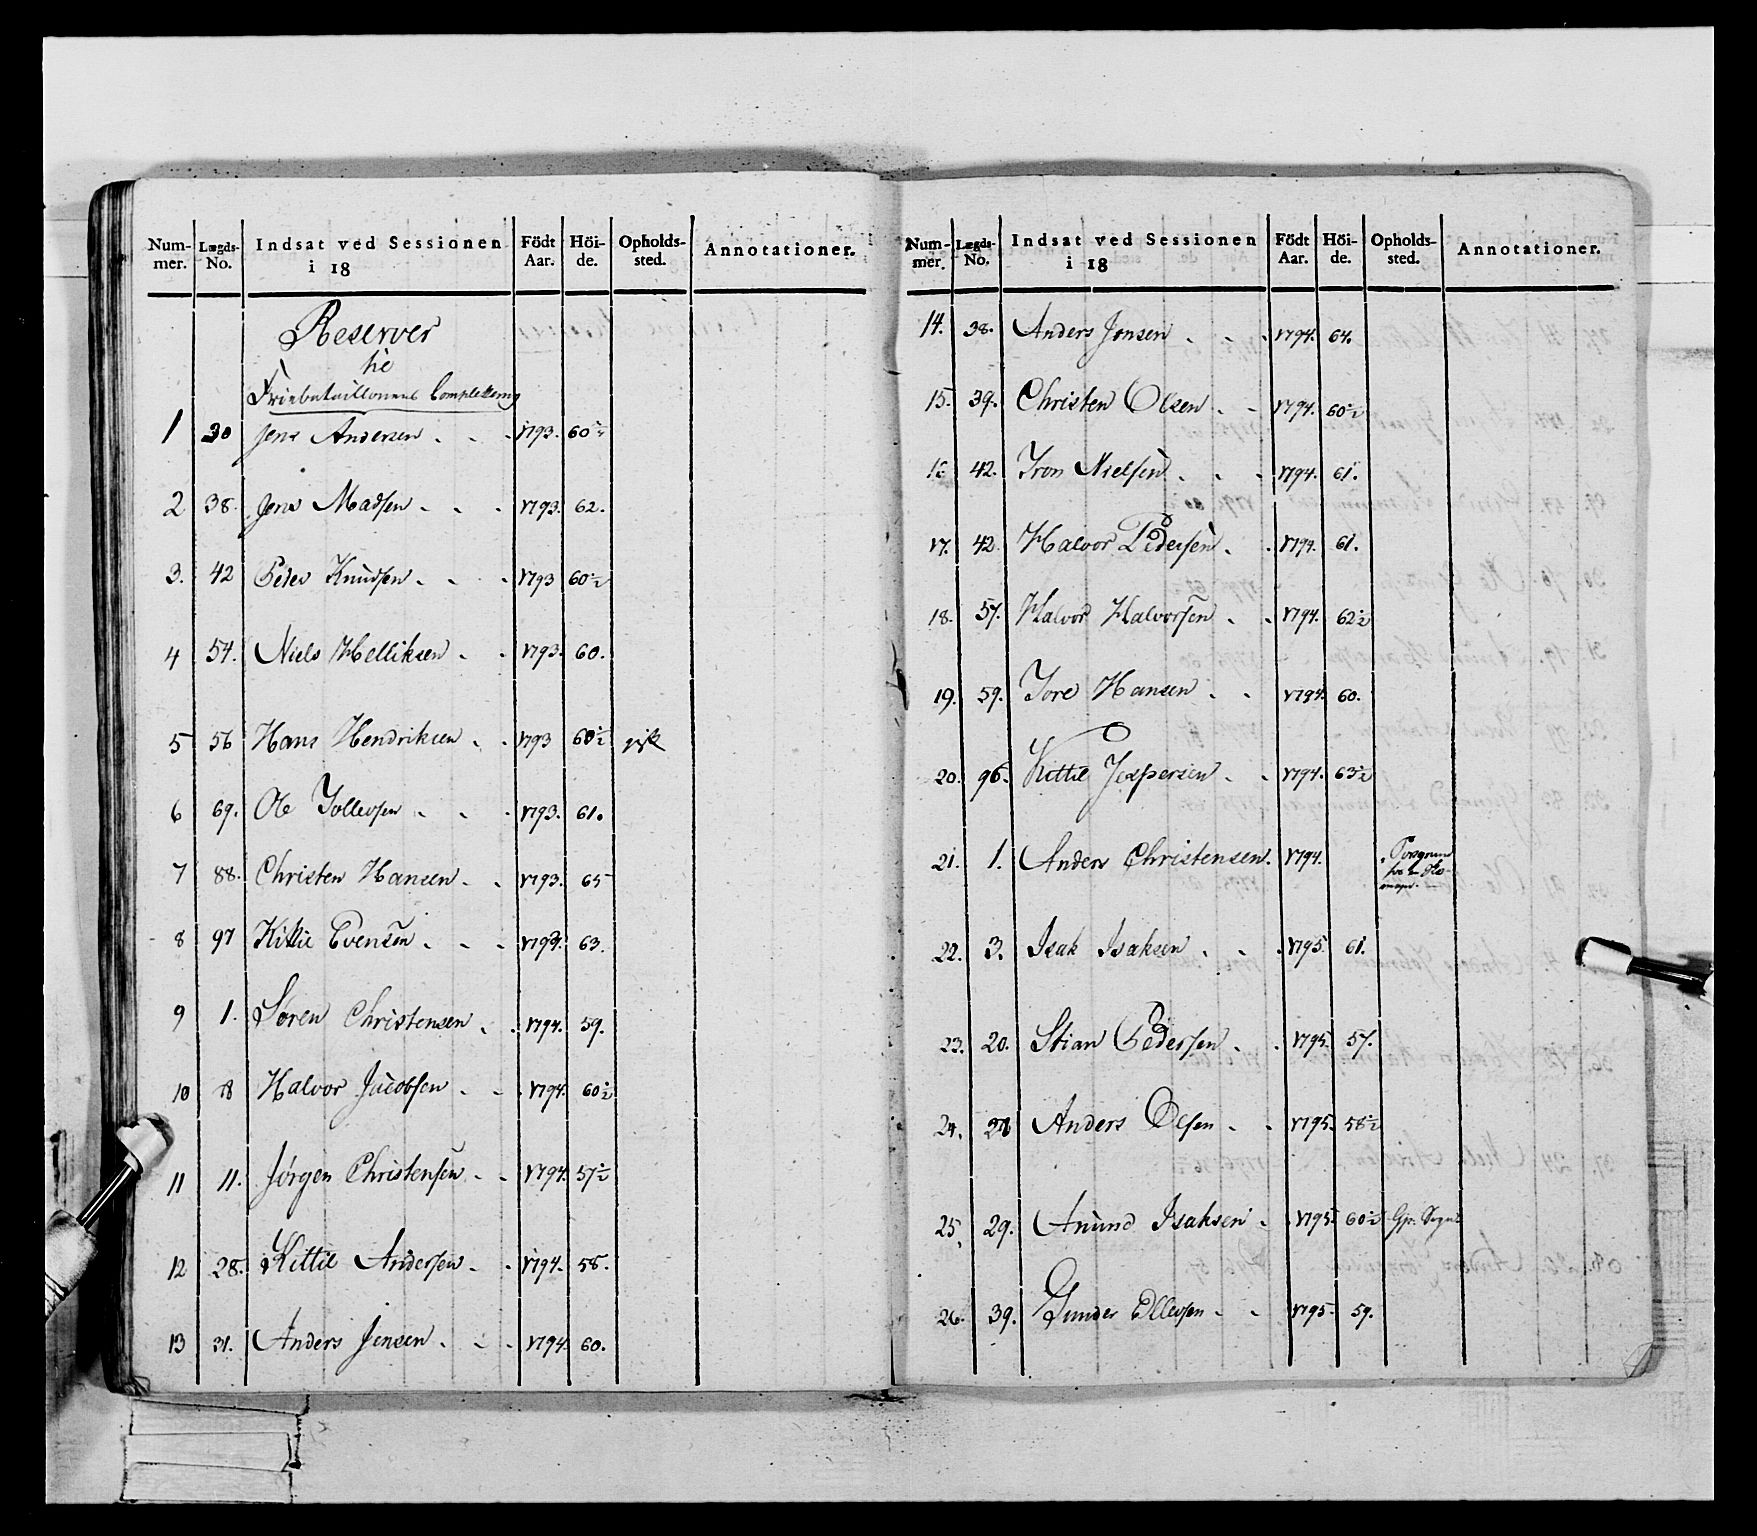 Num-mer. Lægds-No. Indsat ved Sessionen i 18 Födt Aar. Höi-de. Opholds-sted. Annotationer.
Reserver
til
Friebataillonens Complettering
1 30 Jens Andersen . . . 1793. 60½
2 38. Jens Madsen . . . 1793. 62.
3. 42 Peder Knudsen . . . 1793 60½
4 54. Niels Helliksen . . 1793. 60.
5 56 Hans Hendriksen . . 1793 60½
6 69. Ole Tollevsen . . . 1793. 61.
7 88. Christen Hansen . . 1793. 65
8 97 Kittil Evensen . . . 1793. 63.
9 1. Søren Christensen . . 1794. 59.
10 8 Halvor Jacobsen . . 1794. 60½
11 11. Jørgen Christensen . . 1794. 57½
12 28. Kittil Andersen . . 1794. 58.
13 31. Anders Jensen . . . 1794. 60.
Num-mer. Lægds-No. Indsat ved Sessionen i 18 Födt Aar. Höi-de. Opholds-sted. Annotationer.
14. 38. Anders Jonsen . . . 1794. 64.
15. 39. Christen Olsen . . 1794. 60½
16 42. Tron Nielsen . . . 1794. 61.
17. 42. Halvor Pedersen . . 1794. 61.
18. 57. Halvor Halvorsen . . 1794. 62½
19. 59. Tore Hansen . . 1794. 60.
20. 96. Kittil Jespersen . . 1794. 63½
21. 1. Anders Christensen . 1794. Porsgrund
22. 3. Isak Isaksen . . . 1795 61.
23. 20. Stian Pedersen . . 1795. 57.
24. 28 Anders Olsen . . 1795. 58½
25. 29. Anund Isaksen . 1795. 60½
26. 39. Gunder Ellevsen . . 1795. 59.